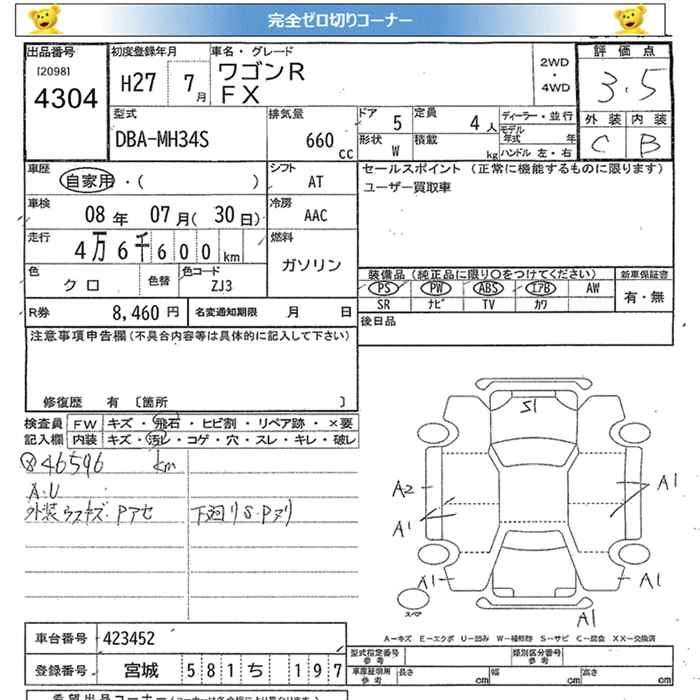 完全ゼロ切りコーナー
出品番号 初度登録年月 車名・グレード 評価点
[2098] 4304
H27 7月 ワゴンR FX
2WD ・ 4WD
3.5
型式 排気量 ドア 定員 ディーラー・並行 外装 内装
DBA-MH34S 660cc 5 4人 モデル年式 年
形状 W 積載 kg ハンドル 左・右 C B
車歴 シフト セールスポイント(正常に機能するものに限ります)
自家用・( ) AT ユーザー買取車
車検 冷房
08年 07月(30日) AAC
走行 燃料
4万6千600km ガソリン
色 色替 色コード 装備品(純正品に限り○をつけてください) 新車保証書
クロ ZJ3 PS PW ABS エアB AW 有・無
SR ナビ TV カワ
R券 8,460円 名変通知期限 月 日 後日品
注意事項申告欄(不具合内容等は具体的に記入して下さい)
修復歴 有 〔箇所 〕
検査員 FW キズ・飛石・ヒビ割・リペア跡・×要
記入欄 内装 キズ・汚レ・コゲ・穴・スレ・キレ・破レ
⊗46596 km
A.U
外装ウスキズ・Pアセ 下廻りS.Pヌリ
S1
A2 A1
A1
A1 A1
A1
スペア
A-キズ E-エクボ U-凹み W-補修跡 S-サビ C-腐食 XX-交換済
車台番号 423452 型式指定番号 参考 類別区分番号 参考
登録番号 宮城 581 ち 197 車庫証明用 参考 長さ cm 幅 cm 高さ cm
希望出品コーナー